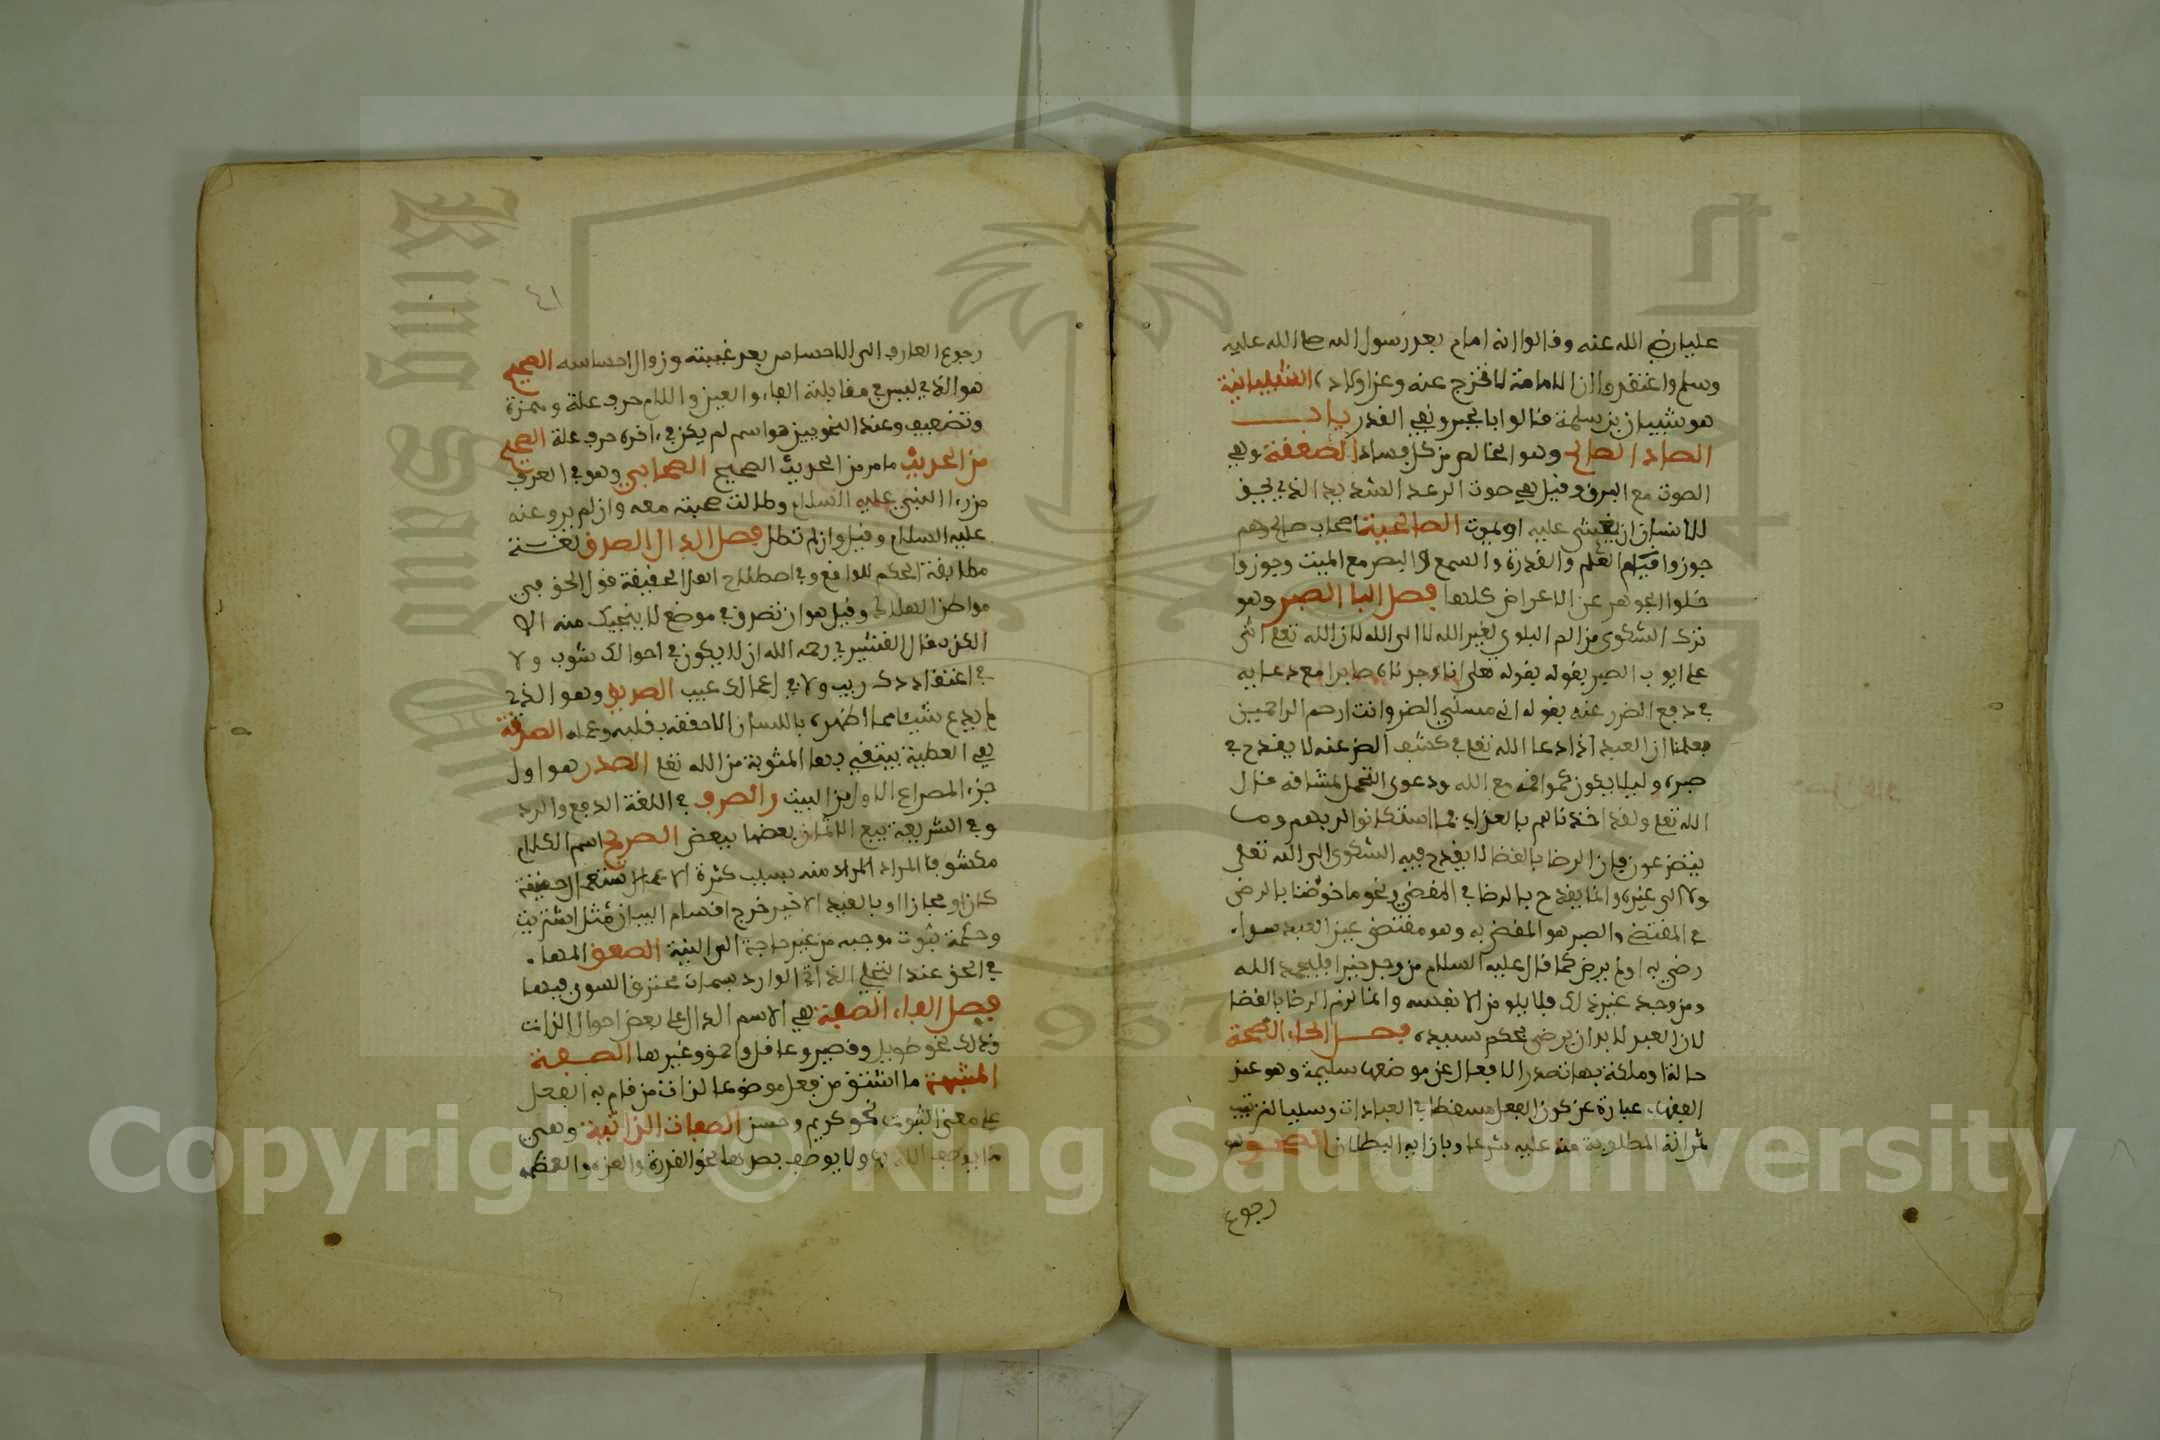 عليا رضي الله عنه وقالوا انه امام بعد رسول الله صلى الله عليه
وسلم واعتقدوا ان الامامة لا تخرج عنه وعن اولاده الشيبانية
هو شيبان بن سلمة قالوا بالجبر ونفي القدر باب
الصاد الصالح وهو الخالص من كل فساد الصعقة وهي
الصوت مع البرق وقيل هي صوت الرعد الشديد الذي يحق
للانسان ان يغشى عليه او يموت الصالحية اصحاب صالح وهم
جوزوا قيام العلم والقدرة والسمع والبصر مع الميت وجوزوا
خلوا الجوهر عن الاعراض كلها فصل البا الصبر وهو
ترك الشكوى من الم البلوى لغير الله لا الى الله لان الله تعلى اثنى
على ايوب الصبر بقوله بقوله تعلى انا وجدناه صابرا مع دعايه
في دفع الضر عنه بقوله اني مسني الضر وانت ارحم الراحمين
فعلمنا ان العبد اذا دعا الله تعلى في كشف الضر عنه لا يقدح في
صبره وليلا يكون كموافق مع الله ودعوى التحمل لمشاقه قال
الله تعلى ولقد اخذناهم بالعذاب فما استكانوا لربهم وما
يتضرعون فإن الرضا بالقضا لا يقدح فيه الشكوى الى الله تعلى
ولا الى غيره وانما يقدح بالرضا في المقضي ونحو ما خوضنا بالرضى
في المقتضى والصبر هو المقضي به وهو مقتضى عين العبد سواء
رضي به او لم يرض كما قال عليه السلام من وجد خيرا فليحمد الله
ومن وجد غير ذلك فلا يلومن الا نفسه وانما لزم الرضا بالقضا
لان العبد لا بد ان يرضى بحكم سيده فصل الحاء الصحة
حالة او ملكة بها تصدر الافعال عن موضعها سليمة وهو عند
الفقهاء عبارة عن كون الفعل مسقطا في العبادات وسببا لترتيب
ثمراته المطلوبة منه عليه شرعا وبازايه البطلان الصحو هو
رجوع
٤١
رجوع العارف الى الاحساس بعد غيبته وزوال احساسه الصحيح
هو الذي ليس في مقابلة الفاء والعين واللام حرف علة وهمزة
وتضعيف وعند النحويين هو اسم لم يكن في ءاخره حرف علة الصحيح
من الحديث ما مر من الحديث الصحيح الصحابي وهو في العرف
من رءا النبي عليه السلام وطالت صحبته معه وان لم يرو عنه
عليه السلام وقيل وان لم تطل فصل الدال الصدق لغة
مطابقة الحكم للواقع وفي اصطلاح اهل الحقيقة قول الحق في
مواطن الهلاك وقيل هو ان تصدق في موضع لا ينجيك منه الا
الكذب قال القشيري رحمه الله ان لا يكون في احوالك شوب ولا
في اعتقادك ريب ولا في اعمالك عيب الصديق وهو الذي
لم يدع شيئا مما اظهره باللسان الا حققه بقلبه وعمله الصدقة
هي العطية يبتغي بها المثوبة من الله تعلى الصدر هو اول
جزء المصراع الاول من البيت والصرف في اللغة الدفع والرد
وفي الشريعة بيع الاثمان بعضها ببعض الصريح اسم الكلام
مكشوفا المراد المراد منه بسبب كثرة الاستعمال حقيقة
كان او مجازا وبالقيد الاخير خرج اقسام البيان مثل اشتريت
وحكمه ثبوت موجبه من غير حاجة الى النية الصعق الفناء
في الحق عند التجلي الذاتي الوارد بسبحات يحترق السوى فيها
فصل الفاء الصفة هي الاسم الدال على بعض احوال الذات
وذلك نحو طويل وقصير وعاقل واحمق وغيرها الصفة
المشبهة ما اشتق من فعل موضوعا لذات من قام به الفعل
على معنى الثبوت نحو كريم وحسن الصفات الذاتية وهي
ما يوصف الله بها ولا يوصف بضدها نحو القدرة والعزة والعظمة